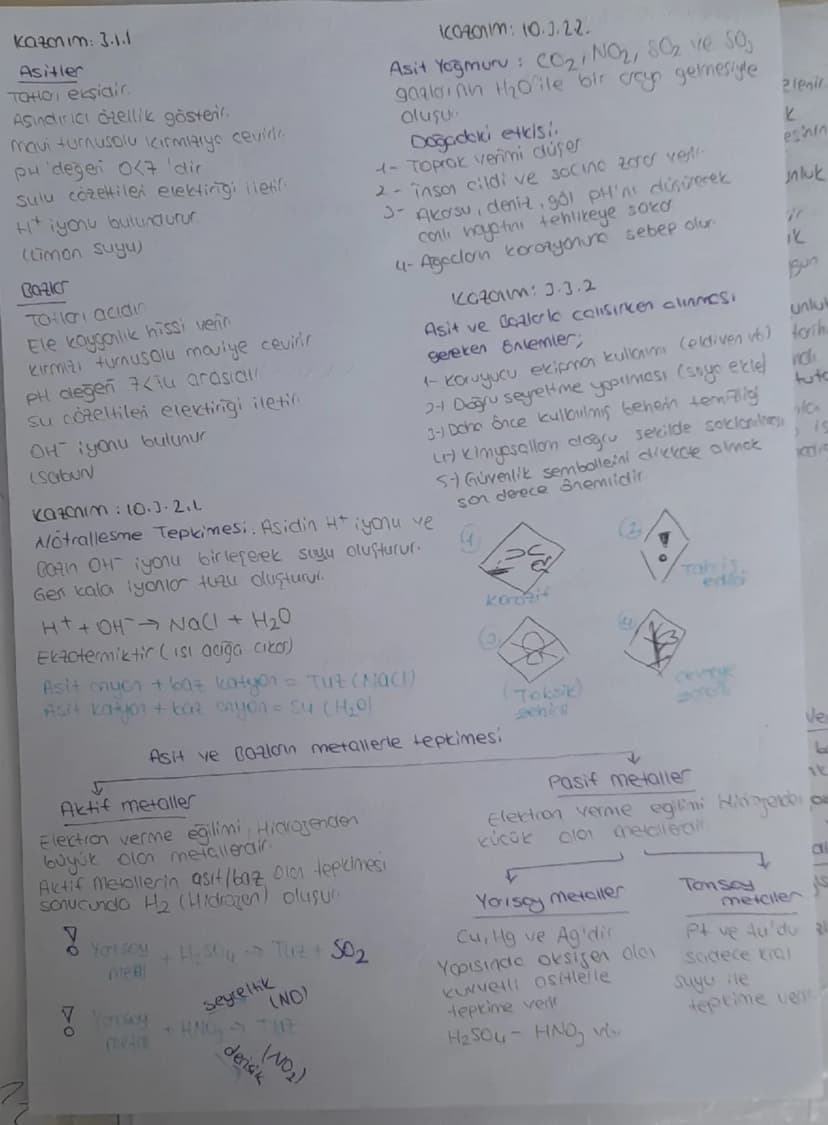 Kazanım: 3.1.1
Asitler
Tatları ekşidir.
Aşındırıcı özellik gösterir.
Mavi turnusolu kırmızıya çevirir.
pH değeri 0<7 'dir
Sulu çözeltileri elektriği iletir.
H+ iyonu bulundurur.
(Limon suyu)
Bazlar
Tatları acıdır
Ele kayganlık hissi verir
Kırmızı turnusolu maviye çevirir
pH değeri 7<14 arasıdır
Su çözeltileri elektiriği iletir.
OH⁻ iyonu bulunur
(Sabun)
Kazanım: 10.3.2.1
Nötralleşme Tepkimesi: Asidin H+ iyonu ve
Bazın OH⁻ iyonu birleşerek suyu oluşturur.
Geri kala iyonlar tuzu oluşturur.
H+ + OH⁻ → NaCl + H₂O
Ekzotermiktir (ısı açığa çıkar)
Asit anyon + baz katyon = Tuz (NaCl)
Asit katyon + baz anyon = Su (H₂O)
Kazanım: 10.3.2.2.
Asit Yağmuru: CO₂, NO₂, SO₂ ve SO₃
gazlarının H₂O ile bir araya gelmesiyle
oluşur.
Doğadaki etkisi.
1- Toprak verimi düşer
2- İnsan cildi ve saçına zarar verir.
3- Akarsu, deniz, göl pH'nı düşürerek
canlı hayatını tehlikeye sokar
4- Ağaçların korozyonuna sebep olur.
Kazanım: 3.3.2
Asit ve Bazlarla çalışırken alınması
gereken önlemler;
1- Koruyucu ekipman kullanımı (eldiven vb)
2-) Doğru seyreltme yapılması (suya ekle)
3-) Daha önce kullanılmış beherin temizliği
4-) Kimyasalların doğru şekilde saklanması
5-) Güvenlik sembollerini dikkate almak
son derece önemlidir.
1
Korozif
2
!
Tahriş
edici
3
(Toksik)
zehirli
4
çevreye
zararlı
Asit ve Bazların metallerle tepkimesi
Aktif metaller
Elektron verme eğilimi, Hidrojenden
büyük olan metallerdir.
Aktif Metallerin asit/baz olan tepkimesi
sonucunda H₂ (Hidrojen) oluşur.
! Yarısoy metal + H₂SO₄ → Tuz + SO₂
! Yarısoy metal + HNO₃ → Tuz
seyreltik (NO)
derişik (NO₂)
Pasif metaller
Elektron verme eğilimi Hidrojenden
küçük olan metallerdir.
Yarısoy metaller
Cu, Hg ve Ag'dir
Yapısında oksijen olan
kuvvetli asitlerle
tepkime verir
H₂SO₄ - HNO₃ vb.
Tamsoy
metaller
Pt ve Au'du
sadece kral
suyu ile
tepkime verir